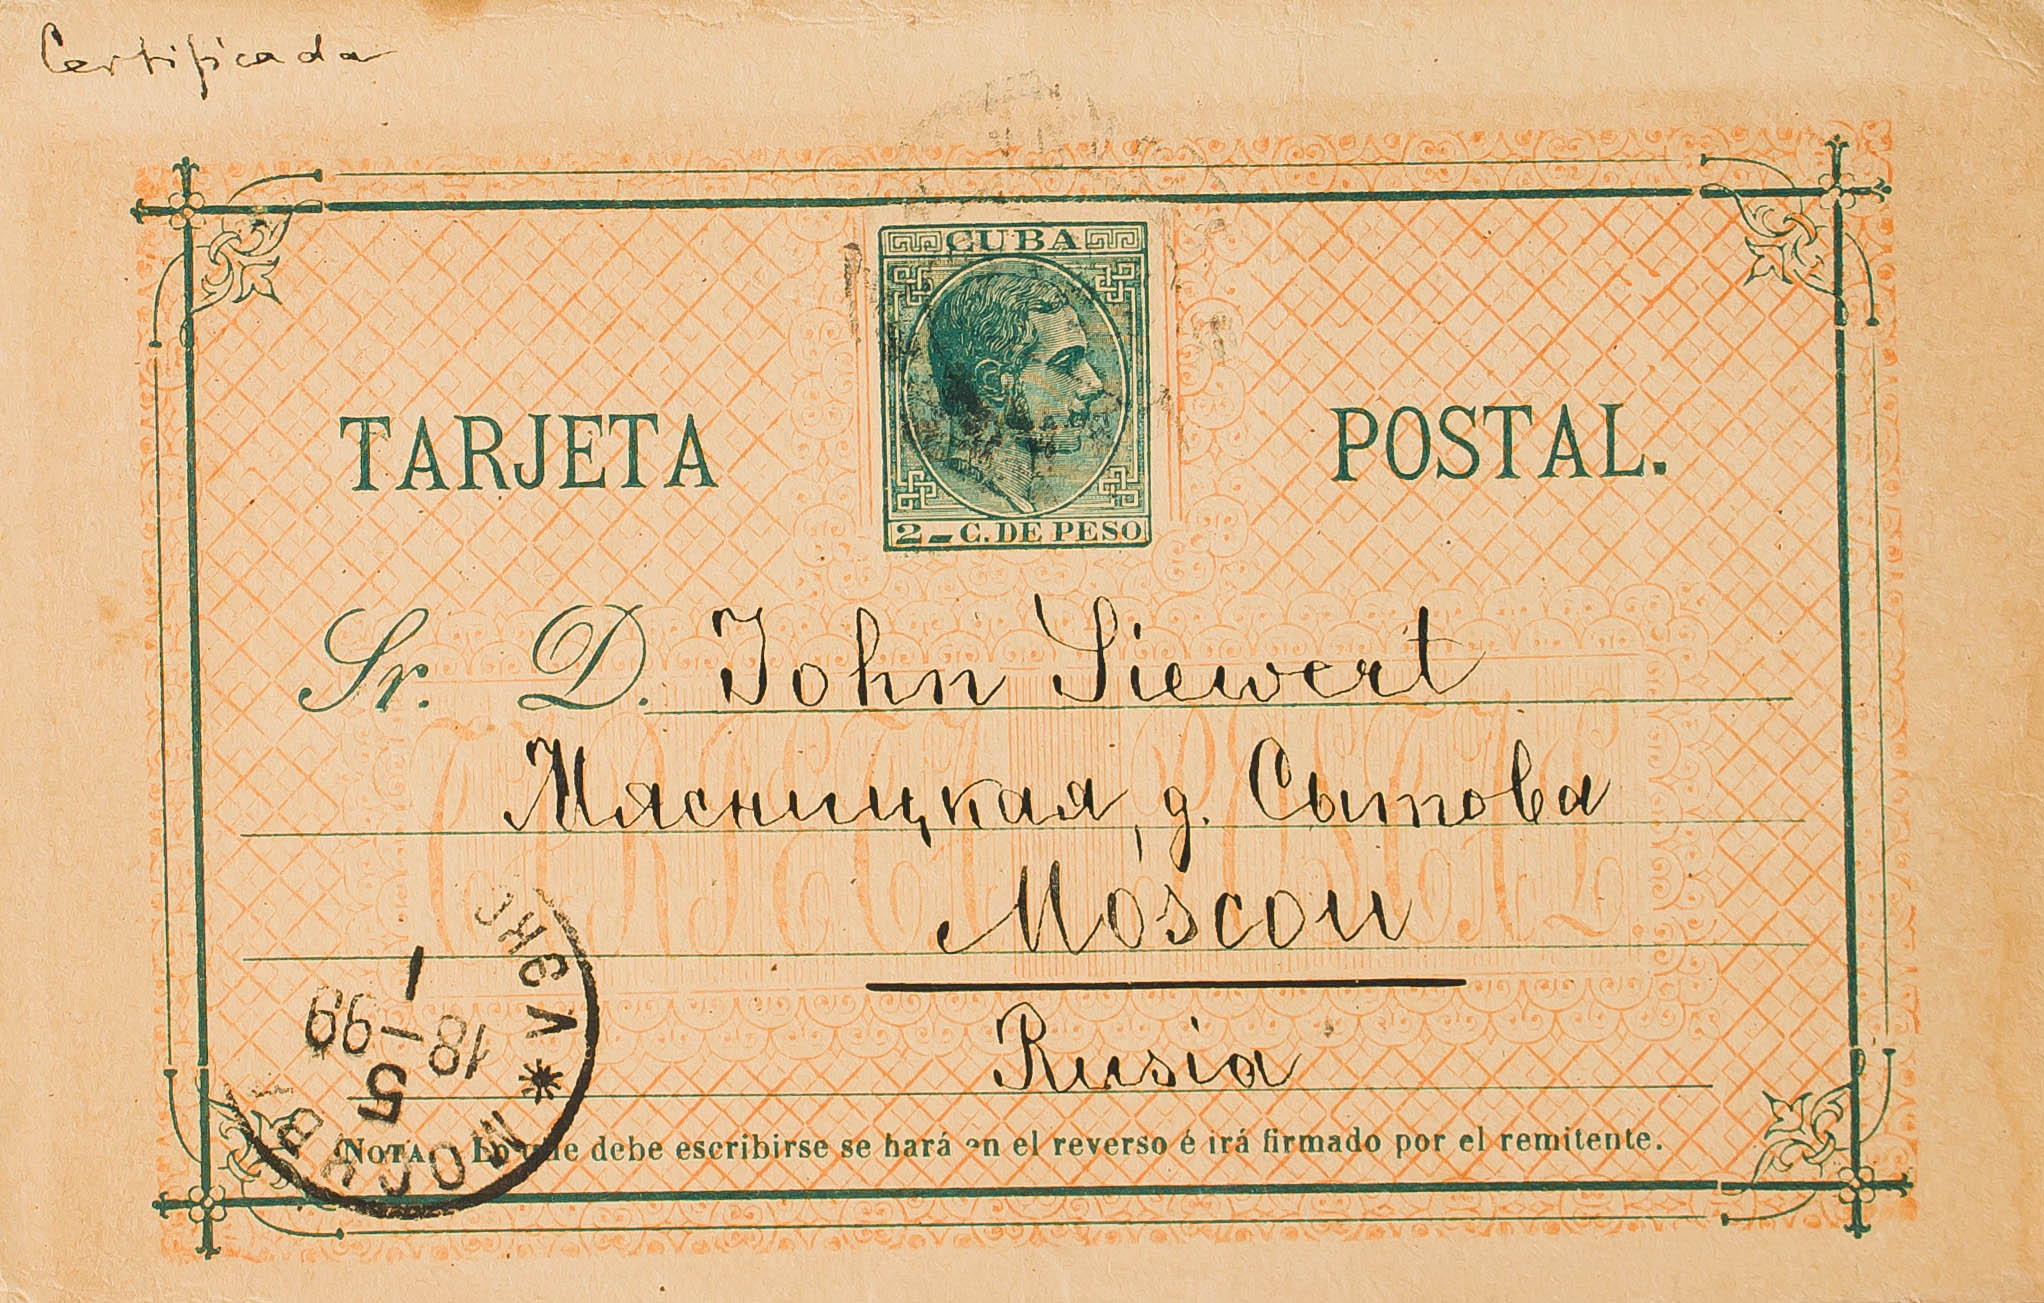 Certificada
CUBA
TARJETA POSTAL.
2 - C. DE PESO
Sr. D. John Siewert
Мясницкая, д. Сытова
Moscou
Rusia
NOTA Lo que debe escribirse se hará en el reverso é irá firmado por el remitente.
МОСКВА
1
18-99
5